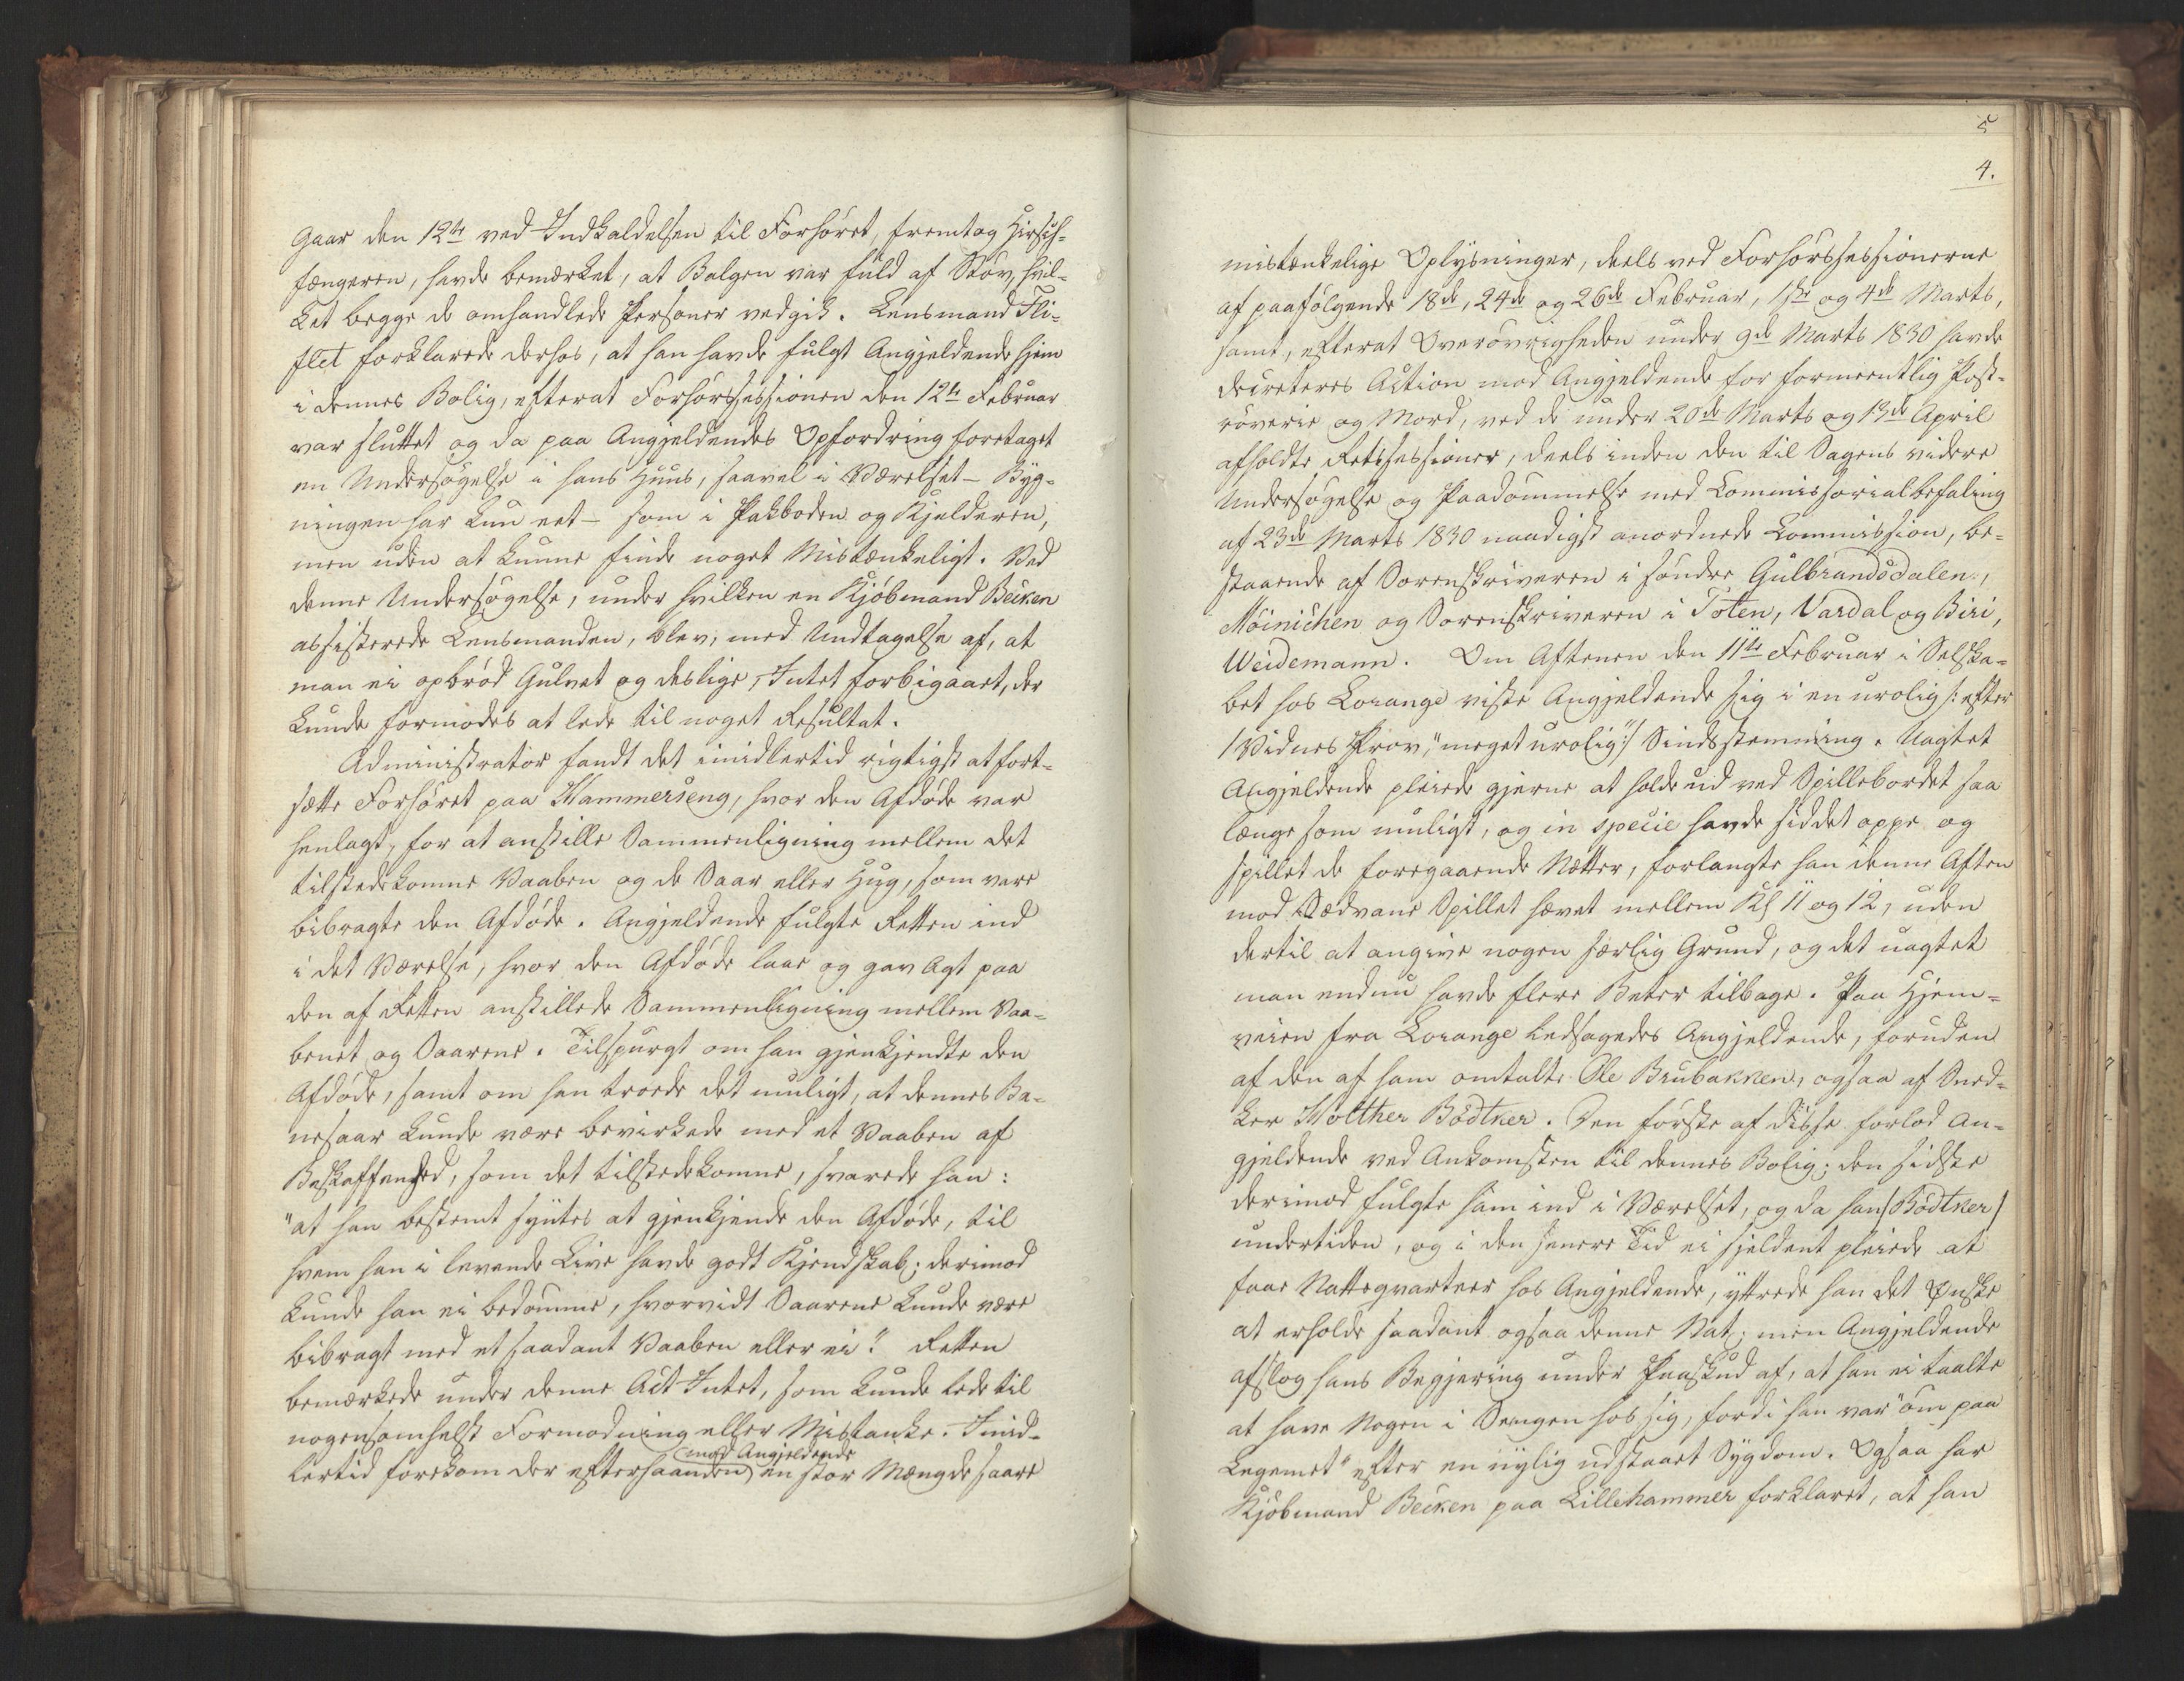 gaar den 12te ved Indkaldelsen til Forhøret, fremtog Hirsch-
fængeren, havde bemærket, at Balgen var fuld af Støv, hvil-
ket begge de omhandlede Personer vedgik. Lensmand Fli-
flet forklarede derhos, at han havde fulgt Angjeldende hjem
i dennes Bolig, efterat Forhørssessionen den 12te Februar
var sluttet og da paa Angjeldendes Opfordring foretaget
en Undersøgelse i hans Huus, saavel i Værelset – Byg-
ningen har kun eet – som i Pakboden og Kjelderen,
men uden at kunne finde noget Mistænkeligt. Ved
denne Undersøgelse, under hvilken en Kjøbmand Becken
assisterede Lensmanden, blev, med Undtagelse af, at
man ei opbrød Gulvet og deslige, Intet forbigaaet, der
kunde formodes at lede til noget Resultat.
Administrator fandt det imidlertid rigtigst at fort-
sætte Forhøret paa Hammerseng, hvor den Afdøde var
henlagt, for at anstille Sammenligning mellem det
tilstedekomne Vaaben og de Saar eller Hug, som vare
bibragte den Afdøde. Angjeldende fulgte Retten ind
i det Værelse, hvor den Afdøde laae og gav Agt paa
den af Retten anstillede Sammenligning mellem Vaa-
benet og Saarene. Tilspurgt om han gjenkjendte den
Afdøde, samt om han troede det muligt, at dennes Ba-
nesaar kunde være bevirkede med et Vaaben af
Beskaffenhed, som det tilstedekomne, svarede han:
"at han bestemt syntes at gjenkjende den Afdøde, til
hvem han i levende Live havde godt Kjendskab; derimod
kunde han ei bedømme, hvorvidt Saarene kunde være
bibragt med et saadant Vaaben eller ei". Retten
bemærkede under denne Act Intet, som kunde lede til
nogensomhelst Formodning eller Mistanke. Imid-
mod Angjeldende
lertid forekom der efterhaanden en stor Mængde saare
5
4.
mistænkelige Oplysninger, deels ved Forhørssessionerne
af paafølgende 18de, 24de og 26de Februar, 1ste og 4de Marts,
samt, efterat Overøvrigheden under 9de Marts 1830 havde
decreteres Action mod Angjeldende for formeentlig Post-
røverie og Mord, ved de under 20de Marts og 13de April
afholdte Retssessioner, deels inden den til Sagens videre
Undersøgelse og Paadømmelse med Commissorialbefaling
af 23de Marts 1830 naadigst anordnede Commission, be-
staaende af Sorenskriveren i søndre Gulbrandsdalen,
Möinichen og Sorenskriveren i Toten, Vardal og Biri,
Weidemann. Om Aftenen den 11te Februar i Selska-
bet hos Lorange viste Angjeldende sig i en urolig /: efter
1 Vidnes Prov, "meget urolig" :/ Sindsstemning. Uagtet
Angjeldende pleiede gjerne at holde ud ved Spillebordet saa
længe som muligt, og in specie havde siddet oppe og
spillet de foregaaende Nætter, forlangte han denne Aften
mod Sædvane Spillet hævet mellem Kl 11 og 12, uden
dertil at angive nogen særlig Grund, og det uagtet
man endnu havde flere Beter tilbage. Paa Hjem-
veien fra Lorange ledsagedes Angjeldende, foruden
af den af ham omtalte Ole Brubakken, ogsaa af Sned-
ker Holther Bödtker. Den første af disse forlod An-
gjeldende ved Ankomsten til dennes Bolig; den sidste
derimod fulgte ham ind i Værelset, og da han /Bödtker/
undertiden, og i den senere Tid ei sjeldent pleiede at
faae Natteqvarteer hos Angjeldende, yttrede han det Ønske
at erholde saadant ogsaa denne Nat; men Angjeldende
afslog hans Begjæring under Paaskud af, at han ei taalte
at have Nogen i Sengen hos sig, fordi han var "øm paa
Legemet" efter en nylig udstaaet Sygdom. Ogsaa har
Kjøbmand Becken paa Lillehammer forklaret, at han